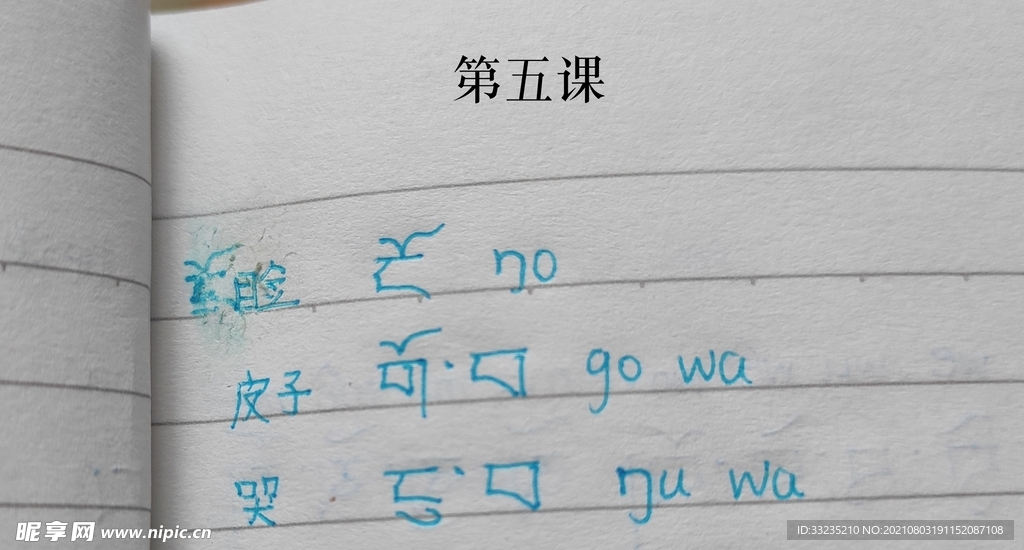 第五课
脸 ངོ ŋo
皮子 ཀོ་བ go wa
哭 ངུ་བ ŋu wa
昵享网 www.nipic.cn
ID:33235210 NO:20210803191152087108